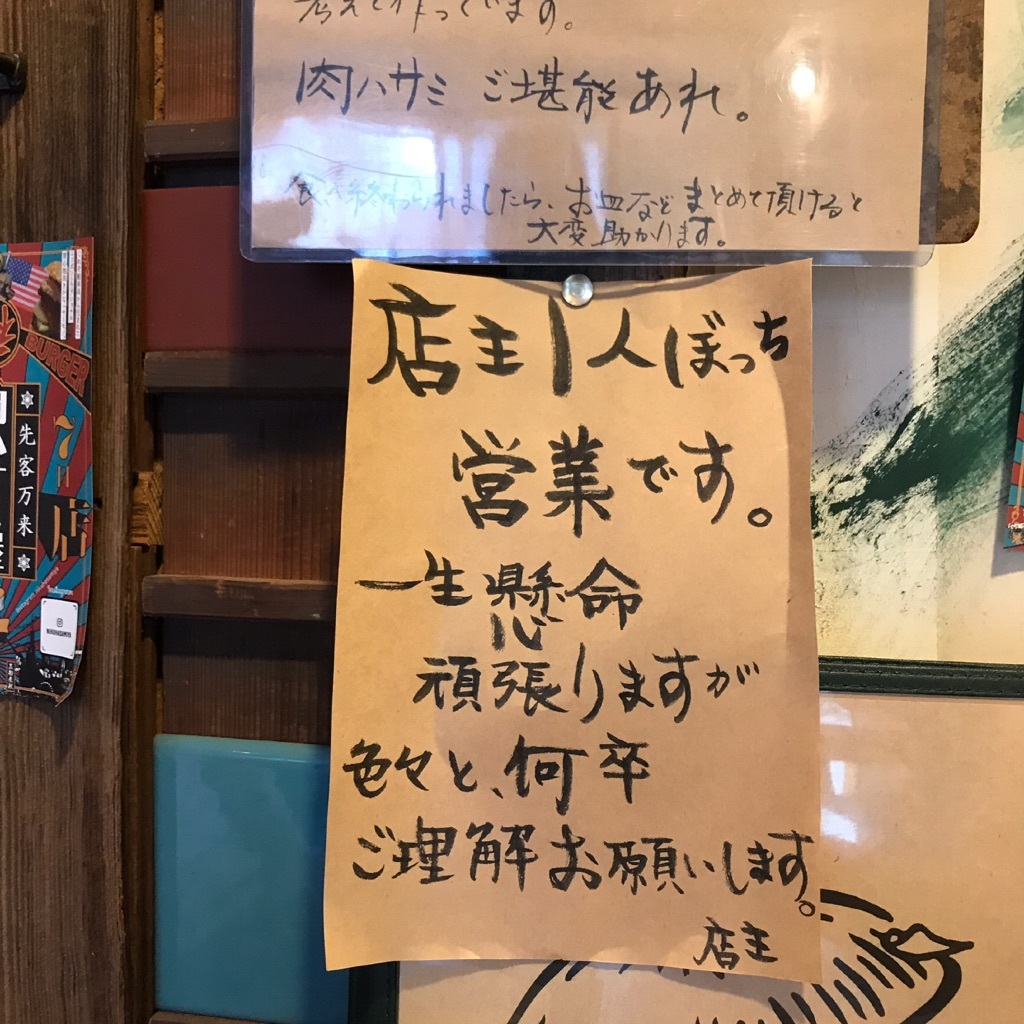 考えて作っています。
肉ハサミ ご堪能あれ。
食べ終わられましたら、お皿などまとめて頂けると
大変助かります。
店主1人ぼっち
営業です。
一生懸命
頑張りますが
色々と、何卒
ご理解お願いします。
店主
BURGER
7月
店
先客万来